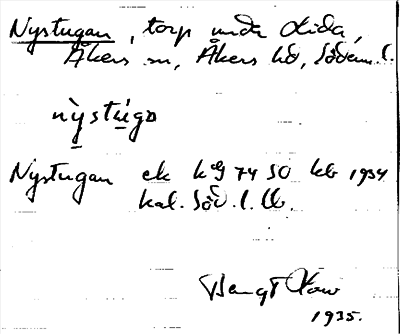 Nystugan, torp under Lida,
Åkers sn, Åkers hd, Söderm. l.
nỳstúgɒ
Nystugan ek k bl 74 SO kb 1934
kal. Söd. l. lb.
Bengt
1935.